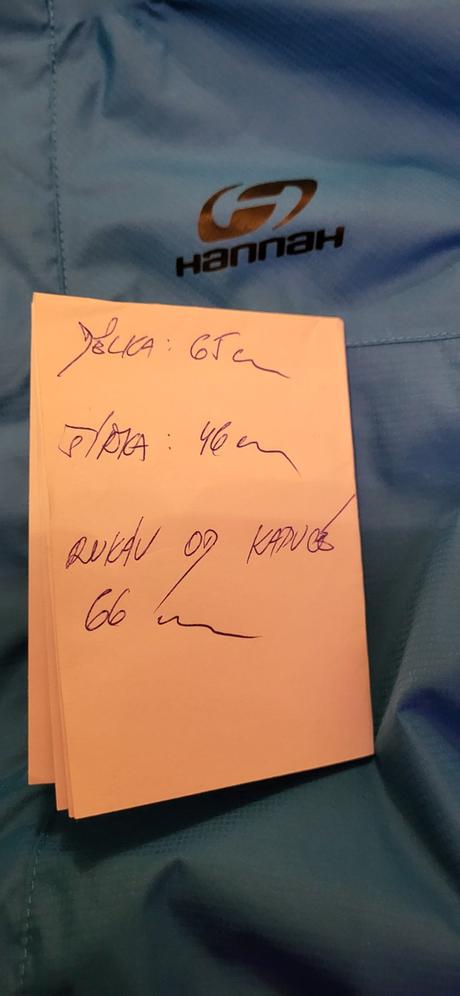 HANNAH
DÉLKA: 65 cm
ŠÍŘKA: 46 cm
RUKÁV OD KAPUCE
66 cm